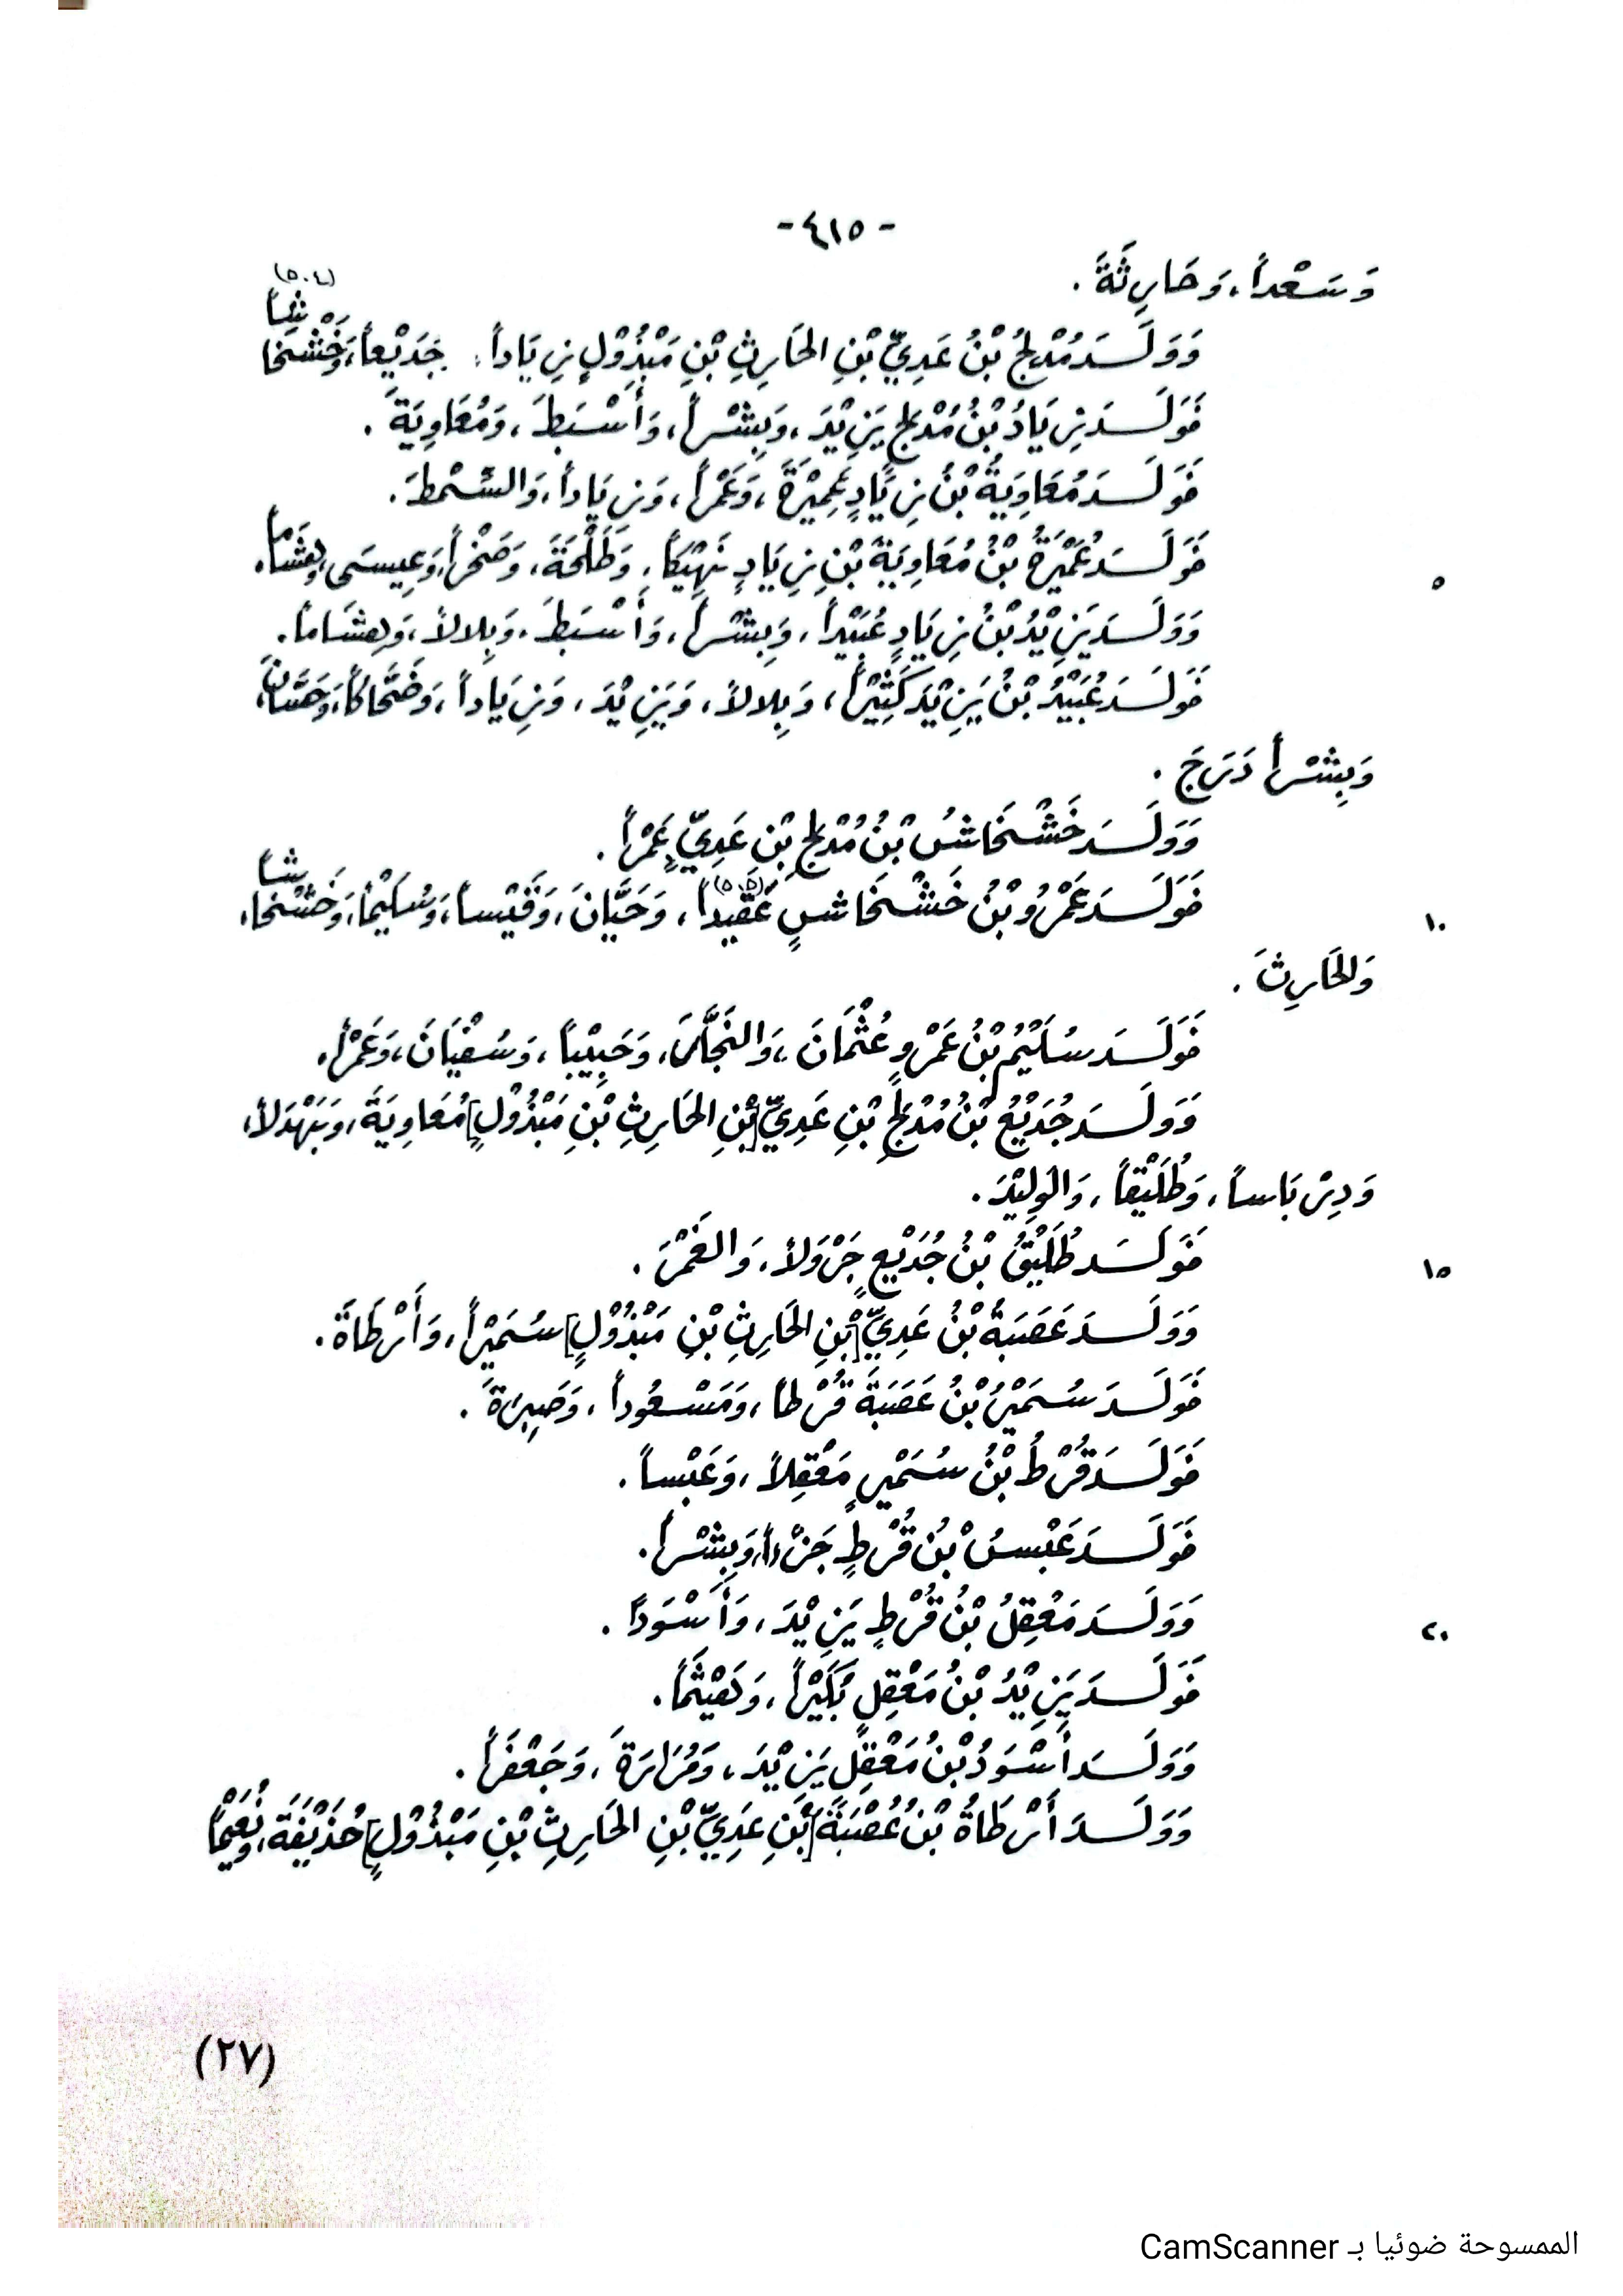 - ٤١٥ -
وَسَعْداً، وَحَارِثَةَ.
وَوَلَـدَ مُدْلِجُ بْنُ عَدِيِّ بْنِ الحَارِثِ بْنِ مَبْذُوْلٍ زِيَاداً، جَدَيْعاً، وَخَشْخَاشاً (٥٠٤)
فَوَلَـدَ زِيَادُ بْنُ مُدْلِجٍ يَزِيْدَ، وَبِشْراً، وَأَسْبَطَ، وَمُعَاوِيَةَ.
فَوَلَـدَ مُعَاوِيَةُ بْنُ زِيَادٍ عَمِيْرَةَ، وَعَمْراً، وَزِيَاداً، وَالسِّمْطَ.
٥ فَوَلَـدَ عُمَيْرَةُ بْنُ مُعَاوِيَةَ بْنِ زِيَادٍ نَهِيْكاً، وَطَلْحَةَ، وَصَخْراً، وَعِيسَى، وَهِشَاماً.
وَوَلَـدَ يَزِيْدُ بْنُ زِيَادٍ عُبَيْداً، وَبِشْراً، وَأَسْبَطَ، وَبِلالاً، وَهِشَاماً.
فَوَلَـدَ عُبَيْدُ بْنُ يَزِيْدَ كَثِيْراً، وَبِلالاً، وَيَزِيْدَ، وَزِيَاداً، وَضَحَّاكاً، وَحَسَّانَ،
وَبِشْراً دَرَجَ.
وَوَلَـدَ خَشْخَاشُ بْنُ مُدْلِجِ بْنِ عَدِيٍّ عَمْراً.
١٠ فَوَلَـدَ عَمْرُو بْنُ خَشْخَاشٍ عَقَّيداً (٥٠٥)، وَحَيَّانَ، وَقَيْساً، وَسُلَيْماً، وَخَشْخَاشاً،
وَالحَارِثَ.
فَوَلَـدَ سُلَيْمُ بْنُ عَمْرٍو عُثْمَانَ، وَالنَجَّارَ، وَحَبِيْباً، وَسُفْيَانَ، وَعَمْراً.
وَوَلَـدَ جُدَيْعُ بْنُ مُدْلِجِ بْنِ عَدِيِّ [بْنِ الحَارِثِ بْنِ مَبْذُوْلٍ] مُعَاوِيَةَ، وَبَهْدَلاً،
وَدِرْبَاساً، وَطُلَيْقاً، وَالوَلِيْدَ.
١٥ فَوَلَـدَ طُلَيْقُ بْنُ جُدَيْعٍ جَرْوَلاً، وَالغَمْرَ.
وَوَلَـدَ عَصَبَةُ بْنُ عَدِيِّ [بْنِ الحَارِثِ بْنِ مَبْذُوْلٍ] سُمَيْراً، وَأَرْطَاةَ.
فَوَلَـدَ سُمَيْرُ بْنُ عَصَبَةَ قُرْطاً، وَمَسْعُوداً، وَصَبِرَةَ.
فَوَلَـدَ قُرْطُ بْنُ سُمَيْرٍ مَعْقِلاً، وَعَبْساً.
فَوَلَـدَ عَبْسُ بْنُ قُرْطٍ جَزْءاً، وَبِشْراً.
٢٠ وَوَلَـدَ مَعْقِلُ بْنُ قُرْطٍ يَزِيْدَ، وَأَسْوَداً.
فَوَلَـدَ يَزِيْدُ بْنُ مَعْقِلٍ بُكَيْراً، وَهَيْثَماً.
وَوَلَـدَ أَسْوَدُ بْنُ مَعْقِلٍ يَزِيْدَ، وَفُزَارَةَ، وَجَعْفَراً.
وَوَلَـدَ أَرْطَاةُ بْنُ عُصْبَةَ [بْنِ عَدِيِّ بْنِ الحَارِثِ بْنِ مَبْذُوْلٍ] حُذَيْفَةَ، وَنُعَيْماً
(٢٧)
الممسوحة ضوئيا بـ CamScanner